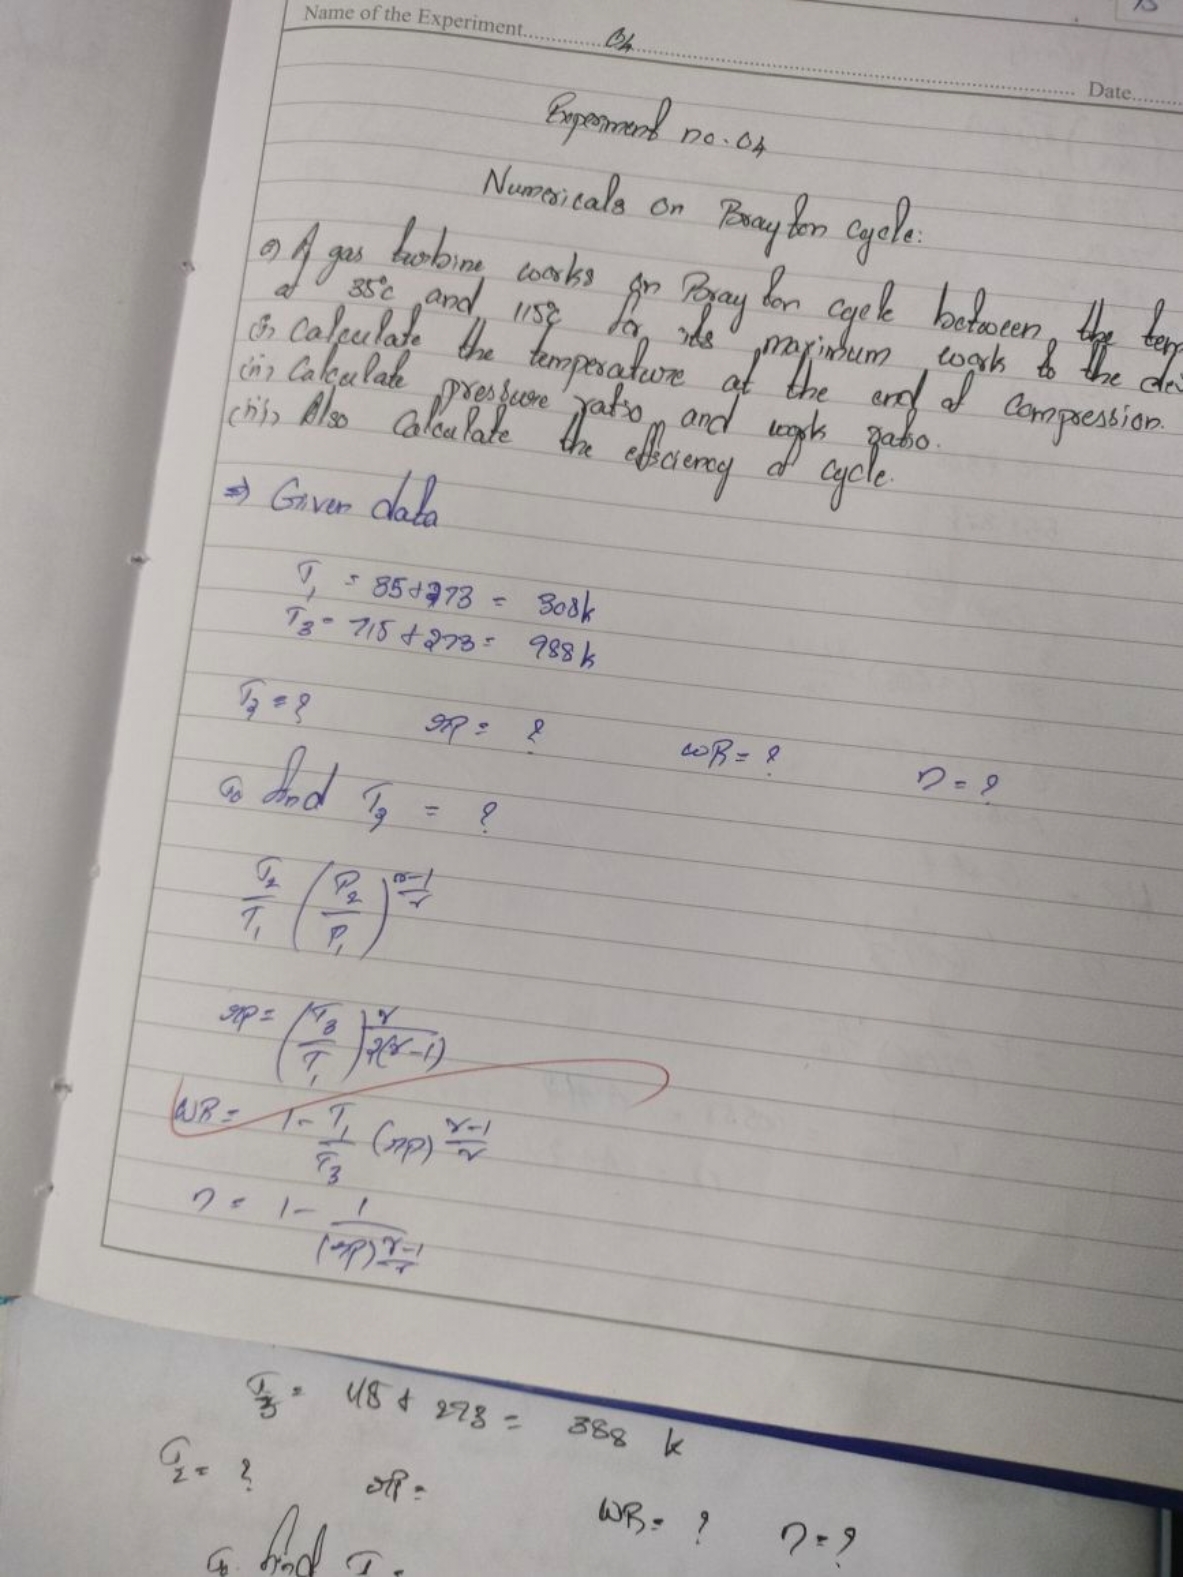 Name of the Experiment
04
Date
Experiment no. 04
Numericals on Brayton Cycle:
A gas turbine works on Brayton cycle between the
at 35°c and 115°c for its maximum work to the
(i) Calculate the temperature at the end of compression.
(ii) Calculate pressure ratio and work ratio.
(iii) Also Calculate the efficiency of cycle.
⇒ Given data
T1 = 35+273 = 308k
T3 = 715+273 = 988k
T2 = ? rp = ? WR = ? η = ?
To find T2 = ?
T2/T1 (P2/P1)^(γ-1)/γ
rp = (T3/T1)^γ/2(γ-1)
WR = 1- T1/T3 (rp)^(γ-1)/γ
η = 1- 1/(rp)^(γ-1)/γ
T3 = 115 + 273 = 388 k
T2 = ? rp = WR = ? η = ?
To find